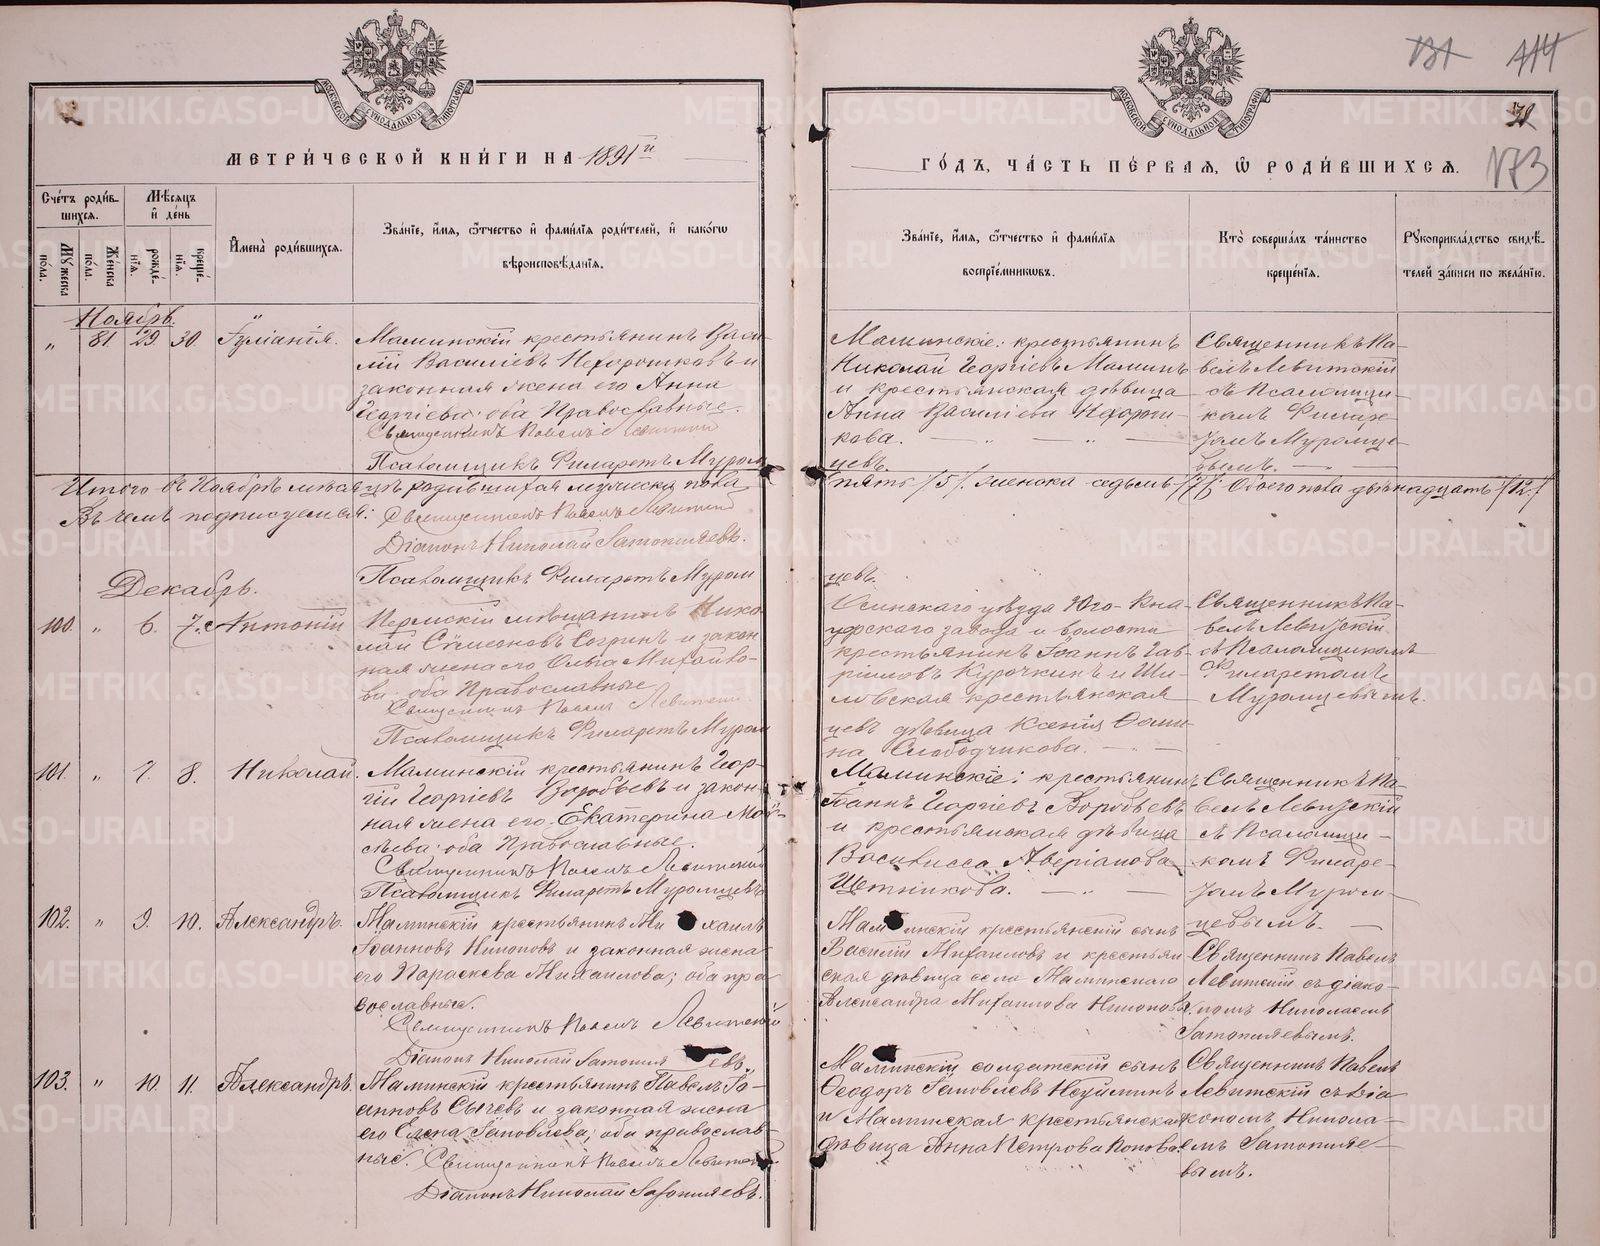 131 414
МОСКОВСКОЙ СѴНОДАЛЬНОЙ ТИПОГРАФІИ
МОСКОВСКОЙ СѴНОДАЛЬНОЙ ТИПОГРАФІИ
METRIKI.GASO-URAL.RU
МЕТРИ́ЧЕСКОЙ КНИ́ГИ НА 1891й
ГО́ДЪ, ЧА́СТЬ ПЕ́РВАЯ, Ѡ РОДИ́ВШИХСЯ.
№73
Сче́тъ роди́в-
шихся.
Мѣ́сяцъ
и҆ де́нь
Му́жеска
по́ла.
Же́нска
по́ла.
рожде́-
нія.
креще́-
нія.
И҆мена̀ роди́вшихся.
Зва́ніе, и҆́мя, ѻ҆́тчество и҆ фами́лія роди́телей, и҆ како́гѡ
вѣроисповѣ́данія.
Зва́ніе, и҆́мя, ѻ҆́тчество и҆ фами́лія
воспрїе́мниковъ.
Кто̀ соверша́лъ та́инство
креще́нія.
Рукоприкла́дство свидѣ́-
телей за́писи по жела́нію.
Ноябрь.
„ 81. 29. 30. Іуліанія.
Маминскій крестьянинъ Васи-
лій Васильевъ Нехорошковъ и
законная жена его Анна
Георгіева: оба Православные.
Священникъ Павелъ Левитскій
Псаломщикъ Филаретъ Муром
Маминскіе: крестьянинъ
Николай Георгіевъ Маминъ
и крестьянская дѣвица
Анна Васильева Нехорош-
кова. — „ — „ —
цевъ.
Священникъ Па-
велъ Левитскій
съ Псаломщи-
комъ Филаре-
томъ Муромце-
вымъ. —
Итого въ Ноябрѣ мѣсяцѣ родившихся мужеска пола пять /5/. женска седьмъ /7/, Обоего пола двѣнадцать /12./
Въ чемъ подписуемся: Священникъ Павелъ Левитскій
Діаконъ Николай Затопляевъ.
Псаломщикъ Филаретъ Муром
цевъ.
Декабрь.
100. „ 6. 7. Антоній
Пермскій мѣщанинъ Нико-
лай Сѵмеоновъ Согринъ и закон-
ная жена его Ольга Михайло-
ва: оба Православные
Священникъ Павелъ Левитскій
Псаломщикъ Филаретъ Муром
Осинскаго уѣзда Юго-Кна-
уфскаго завода и волости
крестьянинъ Іоаннъ Гав-
ріиловъ Курочкинъ и Ши-
ловская крестьянская
цевъ дѣвица Ксенія Ѳоми-
на Слободчикова. —
Священникъ Па-
велъ Левитскій
съ Псаломщикомъ
Филаретомъ
Муромцевымъ.
101. „ 7. 8. Николай.
Маминскій крестьянинъ Геор-
гій Георгіевъ Воробьевъ и закон-
ная жена его Екатерина Мои-
сѣева: оба Православные.
Священникъ Павелъ Левитскій
Псаломщикъ Филаретъ Муромцевъ
Маминскіе: крестьянинъ
Іоаннъ Георгіевъ Воробьевъ
и крестьянская дѣвица
Василисса Аверіанова
Щетникова. — „ —
Священникъ Па-
велъ Левитскій
съ Псаломщи-
комъ Филаре-
томъ Муром-
цевымъ. —
102. „ 9. 10. Александръ.
Маминскій крестьянинъ Михаилъ
Іоанновъ Никоновъ и законная жена
его Параскева Михаилова; оба пра-
вославные.
Священникъ Павелъ Левитскій
Діаконъ Николай Затопляевъ.
Маминскій крестьянскій сынъ
Василій Михаиловъ и крестьян-
ская дѣвица села Маминскаго
Александра Михаилова Никонова.
Священникъ Павелъ
Левитскій съ діако-
номъ Николаемъ
Затопляевымъ.
103. „ 10. 11. Александръ.
Маминскій крестьянинъ Павелъ Іо-
анновъ Сычевъ и законная жена
его Елена Іаковлева; оба православ-
ные. Священникъ Павелъ Левитскій
Діаконъ Николай Затопляевъ.
Маминскій солдатскій сынъ
Ѳеодоръ Іаковлевъ Неуйминъ
и Маминская крестьянская
дѣвица Анна Петрова Попова.
Священникъ Павелъ
Левитскій съ діа-
кономъ Никола-
емъ Затопляе-
вымъ.